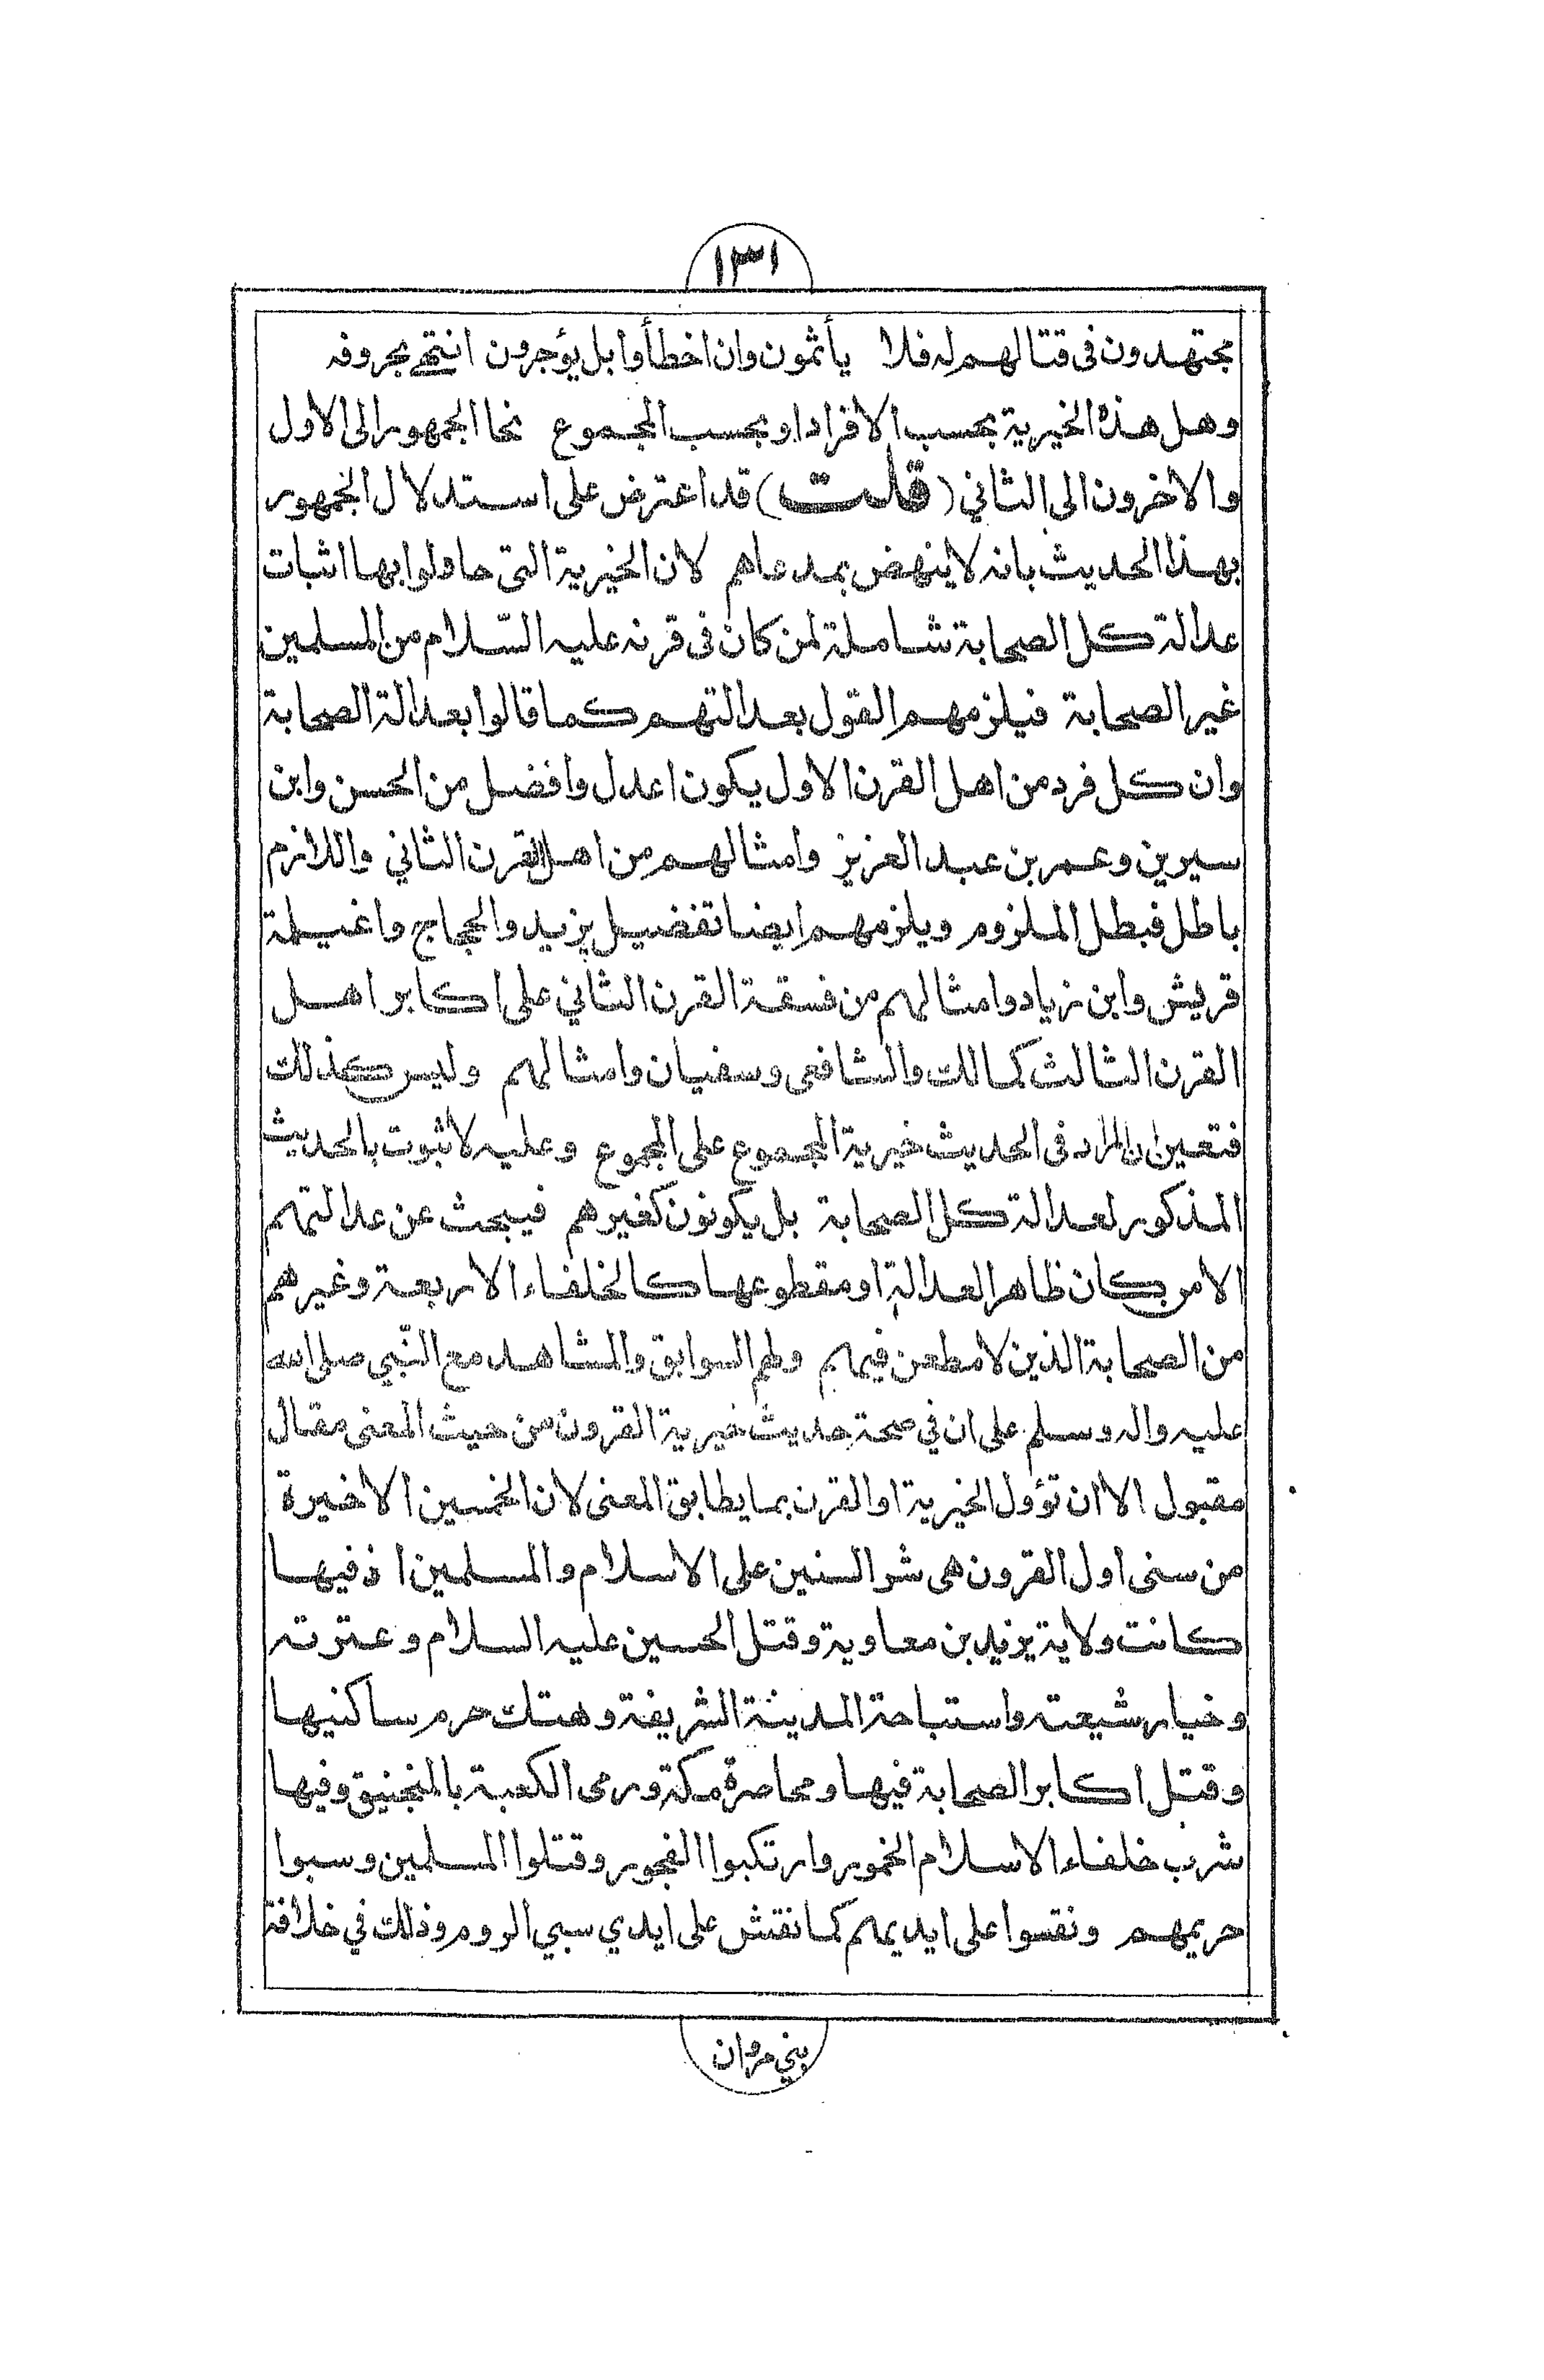 ١٣١
مجتهدون فى قتالهم له فلا يأثمون وان اخطأوا بل يؤجرون انتهى بحروفه
وهل هذه الخيرية بحسب الافراد او بحسب المجموع نحا الجمهور الى الاول
والاخرون الى الثاني (قلت) قد اعترض على استدلال الجمهور
بهذا الحديث بانه لا ينهض بمدعاهم لان الخيرية التى حاولوا بها اثبات
عدالة كل الصحابة شاملة لمن كان فى قرنه عليه السّلام من المسلمين
غير الصحابة فيلزمهم القول بعدالتهم كما قالوا بعدالة الصحابة
وان كل فرد من اهل القرن الاول يكون اعدل وافضل من الحسن وابن
سيرين وعمر بن عبد العزيز وامثالهم من اهل القرن الثاني واللازم
باطل فبطل الملزوم ويلزمهم ايضا تفضيل يزيد والحجاج واغيلمة
قريش وابن زياد وامثالهم من فسقة القرن الثاني على اكابر اهل
القرن الثالث كمالك والشافعى وسفيان وامثالهم وليس كذلك
فتعين ان المراد فى الحديث خيرية المجموع على المجموع وعليه لا ثبوت بالحديث
المذكور لعدالة كل الصحابة بل يكونون كغيرهم فيبحث عن عدالتهم
الا من كان ظاهر العدالة او مقطوعها كالخلفاء الاربعة وغيرهم
من الصحابة الذين لا مطعن فيهم ولهم السوابق والمشاهد مع النّبي صلى الله
عليه واله وسلم على ان في صحة حديث خيرية القرون من حيث المعنى مقال
مقبول الا ان تؤول الخيرية او القرن بما يطابق المعنى لان الخمسين الاخيرة
من سنى اول القرون هى شر السنين على الاسلام والمسلمين اذ فيها
كانت ولاية يزيد بن معاوية وقتل الحسين عليه السلام وعترته
وخيار شيعته واستباحة المدينة الشريفة وهتك حرم ساكنيها
وقتل اكابر الصحابة فيها ومحاصرة مكة ورمى الكعبة بالمنجنيق وفيها
شرب خلفاء الاسلام الخمور وارتكبوا الفجور وقتلوا المسلمين وسبوا
حريمهم ونقسوا على ايديهم كما نقش على ايدي سبي الروم وذلك في خلافة
بني مروان